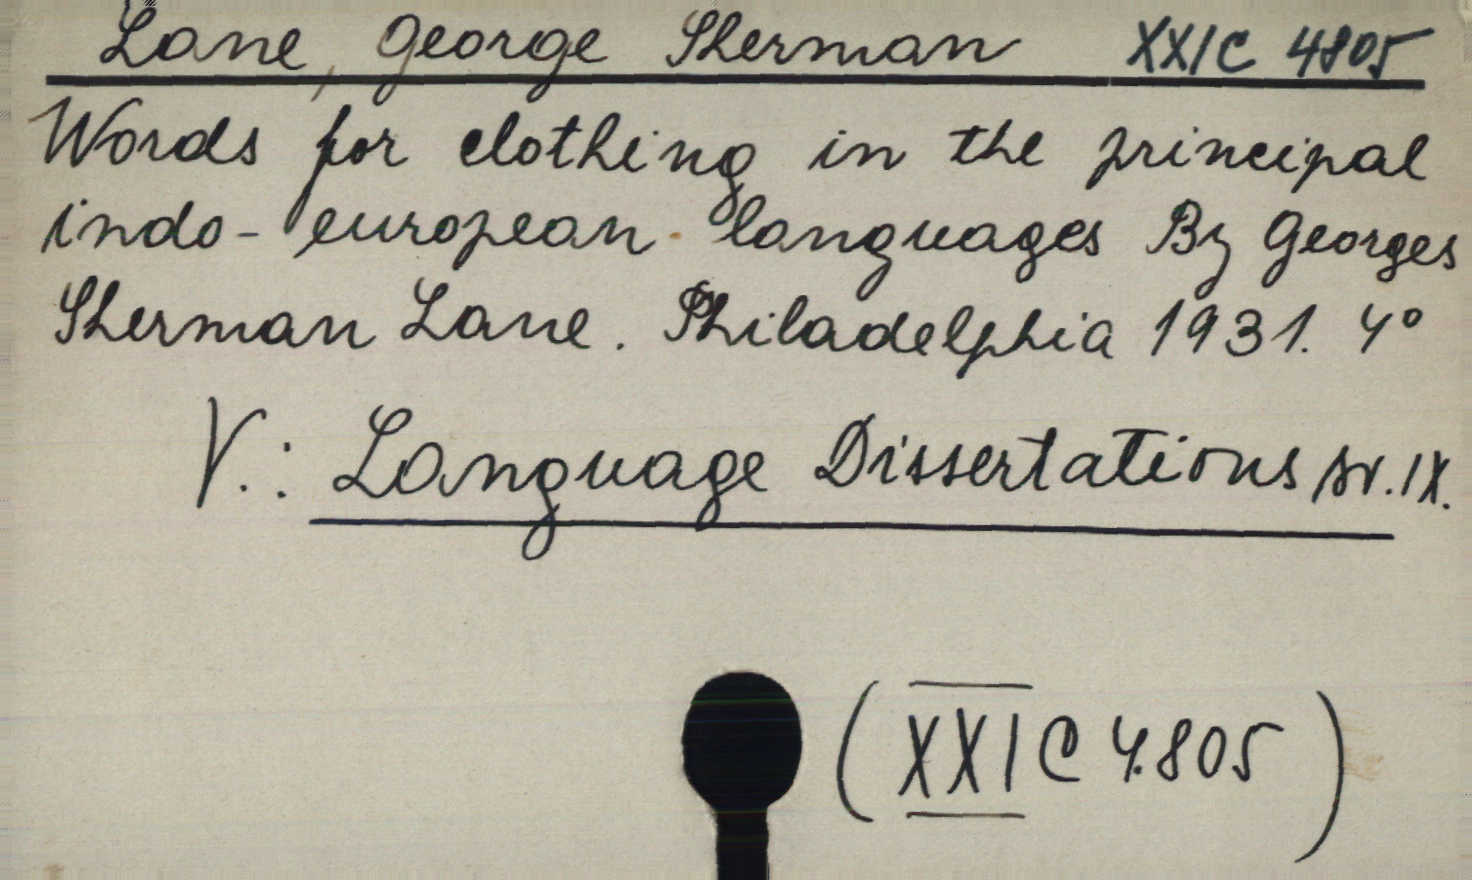 Lane, George Sherman XXIC 4805
Words for clothing in the principal
indo-european languages By Georges
Sherman Lane. Philadelphia 1931. 4°
V.: Language Dissertations nr. IX.
(XXI C 4.805)